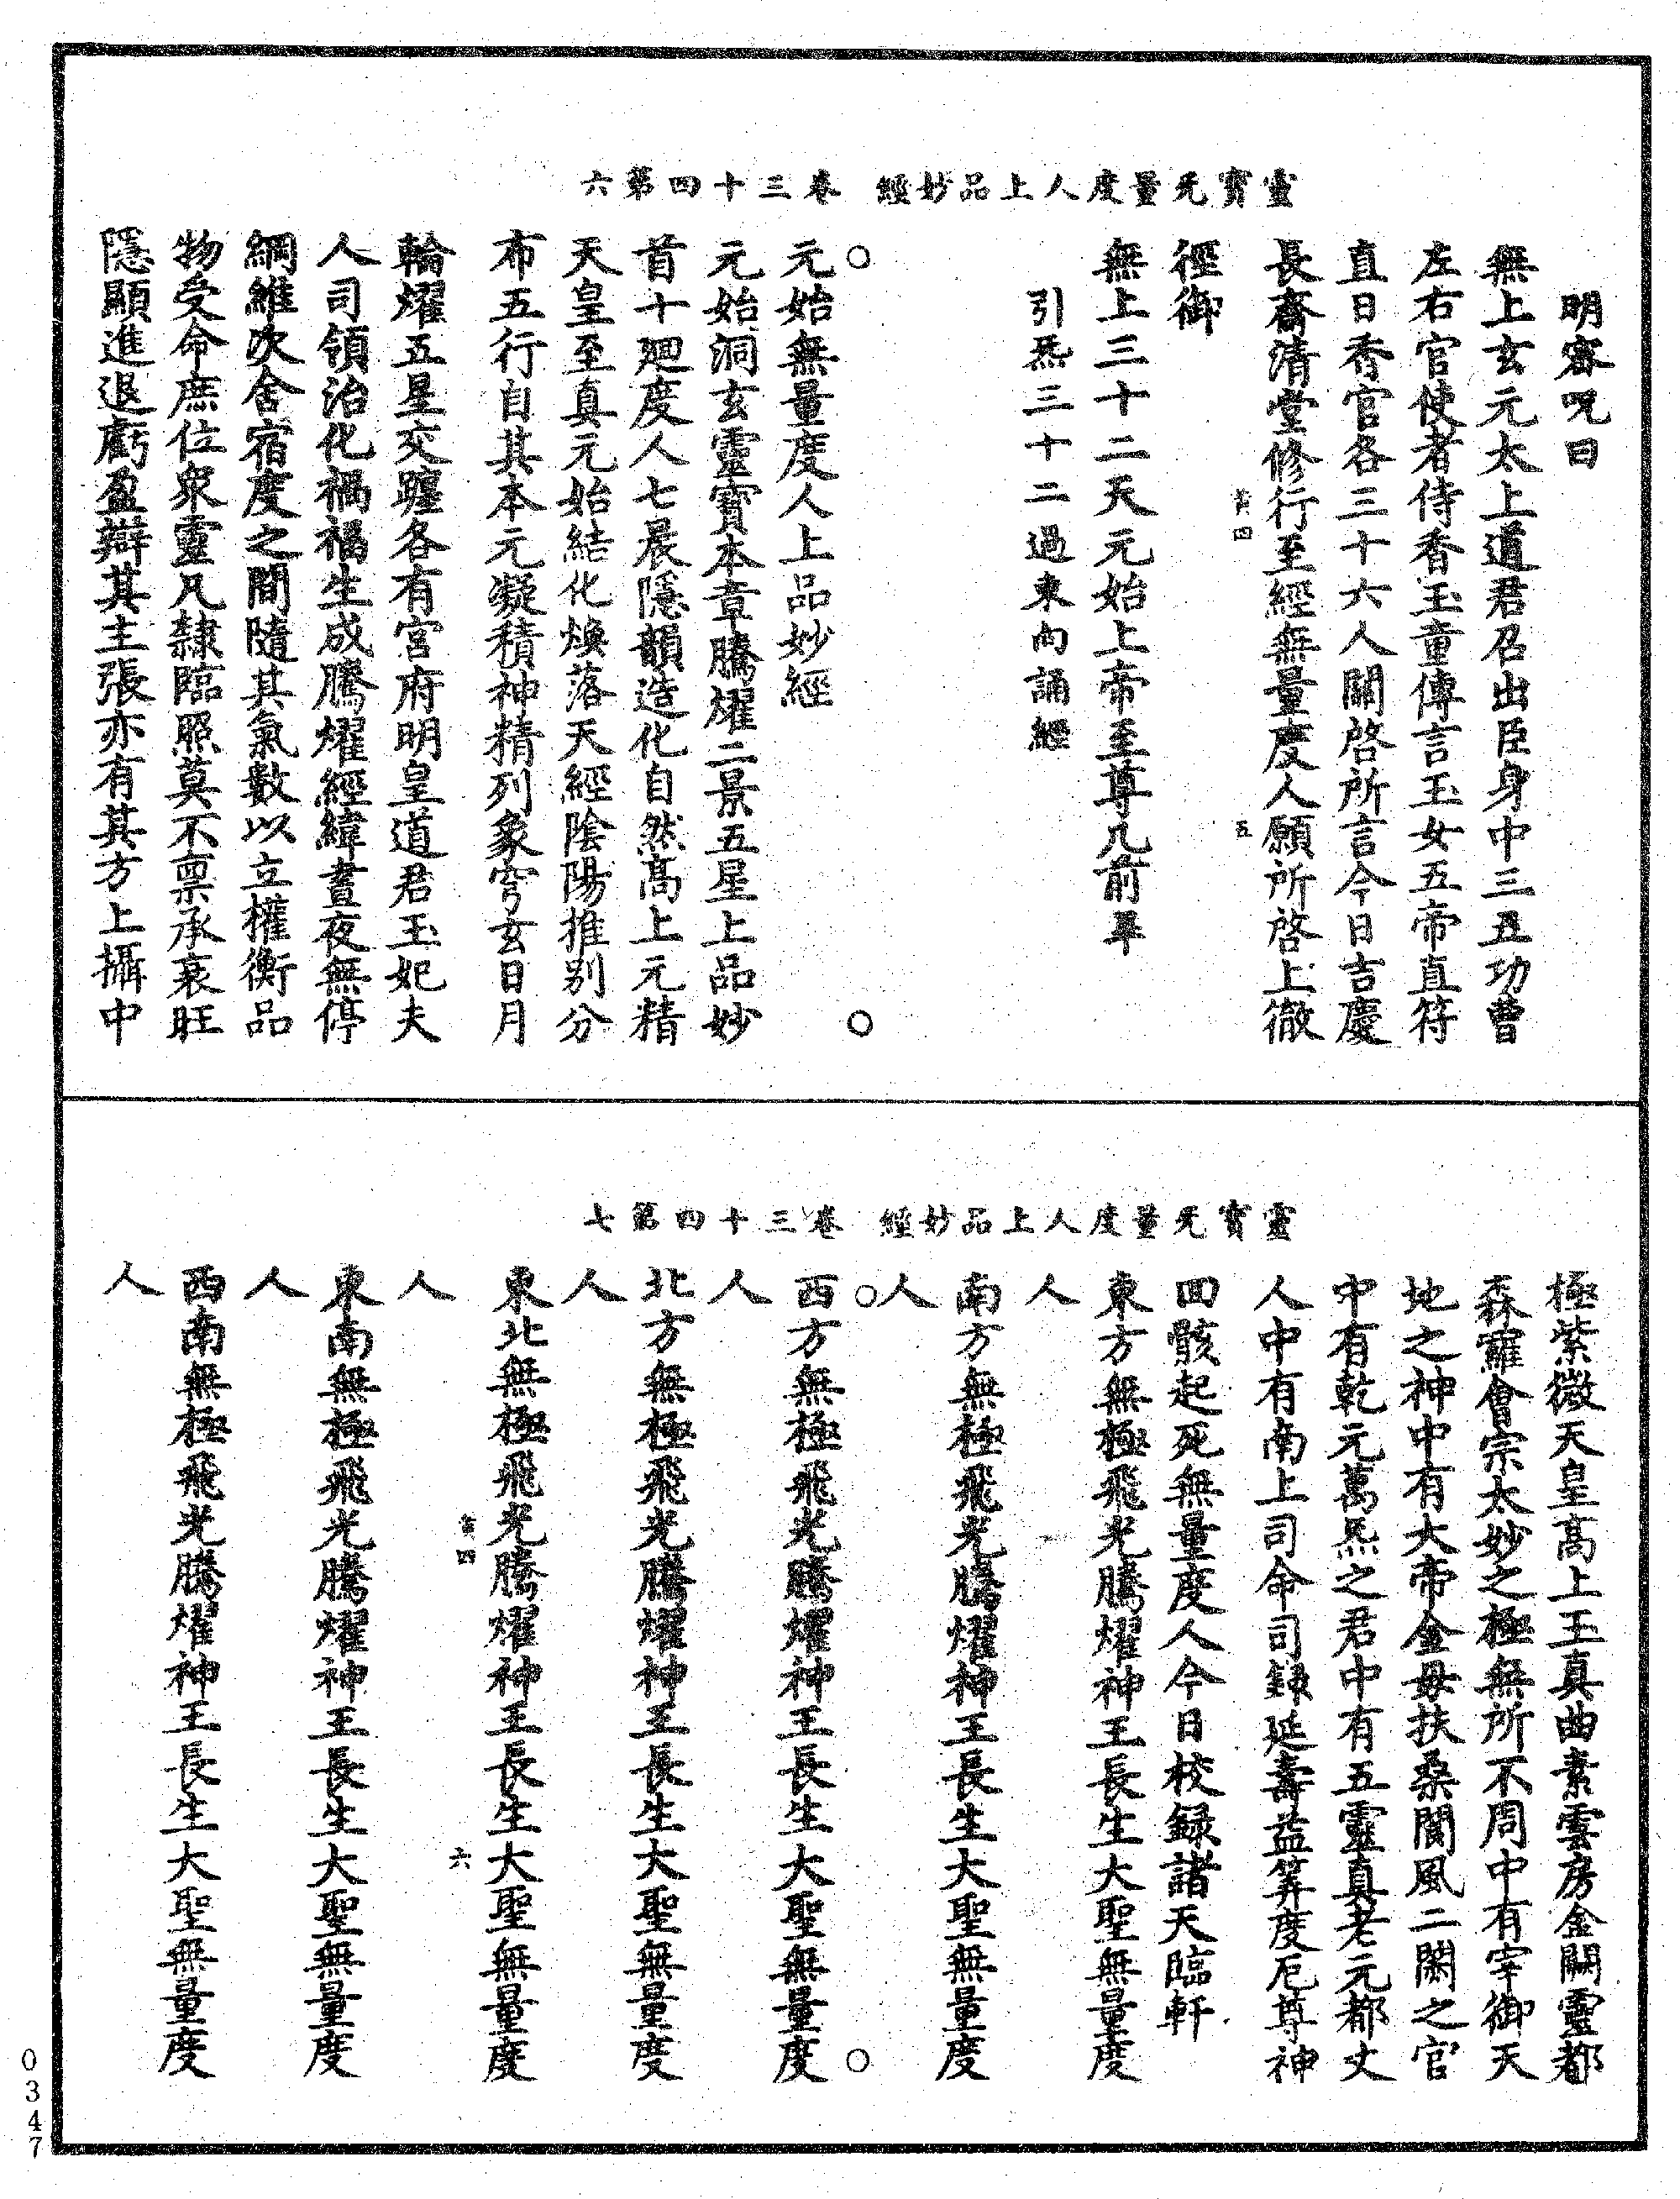 靈寶无量度人上品妙經 卷三十四第六
明密呪曰
無上玄元太上道君召出臣身中三五功曹
左右官使者侍香玉童傳言玉女五帝直符
直日香官各三十六人關啓所言今日吉慶
長齋清堂修行至經無量度人願所啓上徹
徑御
無上三十二天元始上帝至尊几前畢
引炁三十二過東向誦經
元始無量度人上品妙經
元始洞玄靈寶本章騰耀二景五星上品妙
首十廻度人七晨隱韻造化自然高上元精
天皇至真元始結化煥落天經陰陽推别分
布五行自其本元凝積神精列象穹玄日月
輪燿五星交躔各有宮府明皇道君玉妃夫
人司領治化禍福生成騰燿經緯晝夜無停
綱維次舍宿度之間隨其氣數以立權衡品
物受命庶位衆靈凡隸臨照莫不禀承衰旺
隱顯進退虧盈辯其主張亦有其方上攝中
靈寶无量度人上品妙經 卷三十四第七
極紫微天皇高上玉真曲素雲房金闕靈都
森羅會宗太妙之極無所不周中有宰御天
地之神中有大帝金母扶桑閬風二闕之官
中有乾元萬炁之君中有五靈真老元都丈
人中有南上司命司録延壽益筭度厄尊神
回骸起死無量度人今日校録諸天臨軒
東方無極飛光騰燿神王長生大聖無量度
人
南方無極飛光騰燿神王長生大聖無量度
人
西方無極飛光騰燿神王長生大聖無量度
人
北方無極飛光騰燿神王長生大聖無量度
人
東北無極飛光騰燿神王長生大聖無量度
人
東南無極飛光騰燿神王長生大聖無量度
人
西南無極飛光騰燿神王長生大聖無量度
人
0347